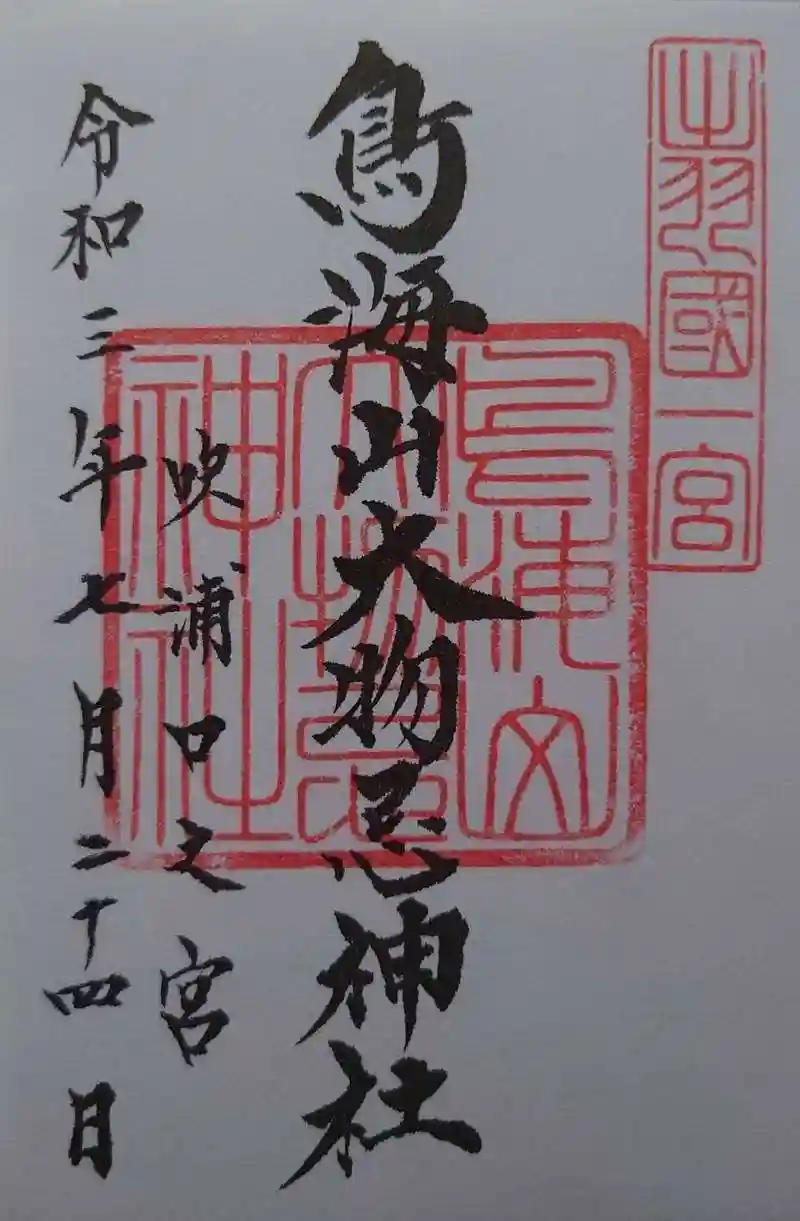 出羽國一宮
鳥海山大物忌神社
鳥海山
大物忌
神社
吹浦口之宮
令和三年七月二十四日